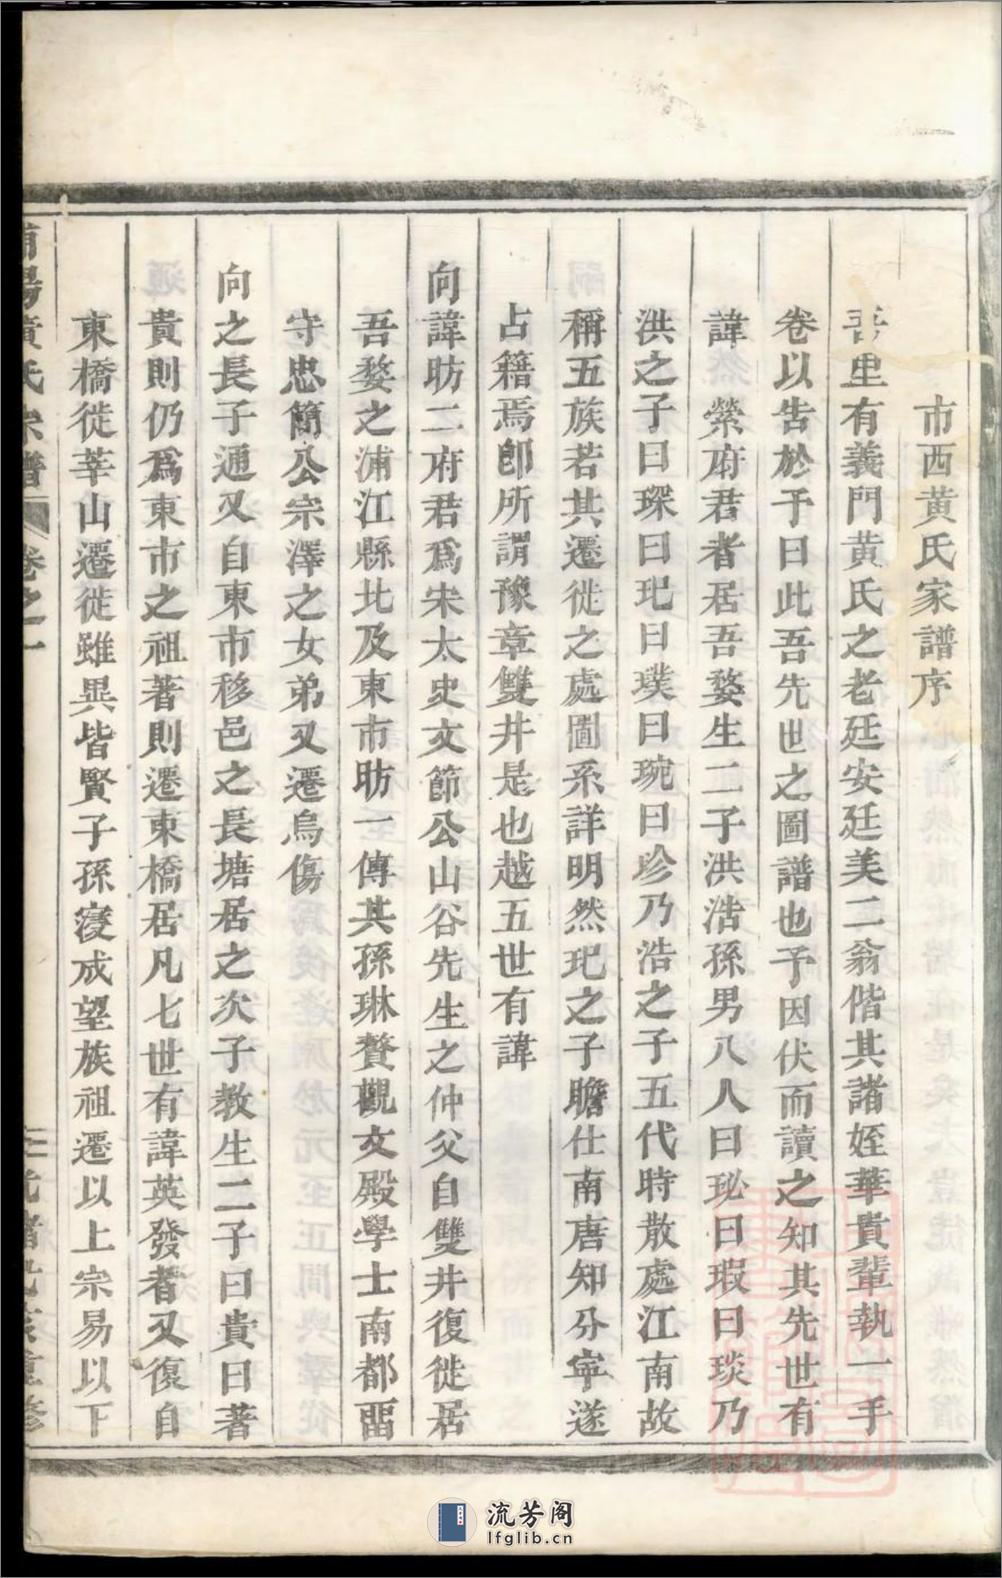 市西黄氏家譜序
吾里有義門黄氏之老廷安廷美二翁偕其諸姪華貴輩執一手
卷以告於予曰此吾先世之圖譜也予因伏而讀之知其先世有
諱 縈府君者居吾婺生二子洪浩孫男八人曰珌曰瑕曰琰乃
洪之子曰琛曰玘曰璞曰琬曰珍乃浩之子五代時散處江南故
稱五族若其遷徙之處圖系詳明然玘之子瞻仕南唐知分寧遂
占籍焉卽所謂豫章雙井是也越五世有諱
向諱昉二府君爲宋太史文節公山谷先生之仲父自雙井復徙居
吾婺之浦江縣北及東市昉一傳其孫琳贅觀文殿學士南都畱
守忠簡公宗澤之女弟又遷烏傷
向之長子通又自東市移邑之長塘居之次子教生二子曰貴曰著
貴則仍爲東市之祖著則遷東橋居凡七世有諱英發者又復自
東橋徙莘山遷徙雖異皆賢子孫寖成望族祖遷以上宗易以下
黄氏宗譜 卷之一
流芳阁
lfglib.cn